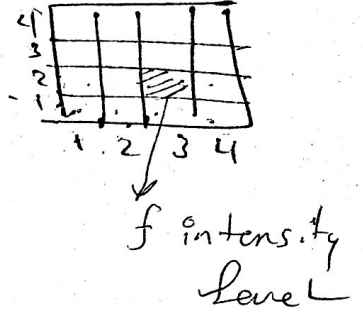 4
3
2
1
1 2 3 4
f intensity
level